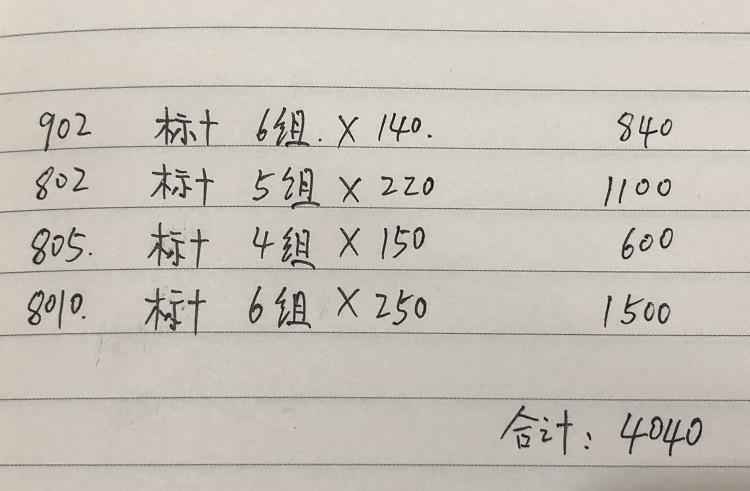 902 标十 6组. × 140. 840
802 标十 5组 × 220 1100
805. 标十 4组 × 150 600
8010. 标十 6组 × 250 1500
合计: 4040